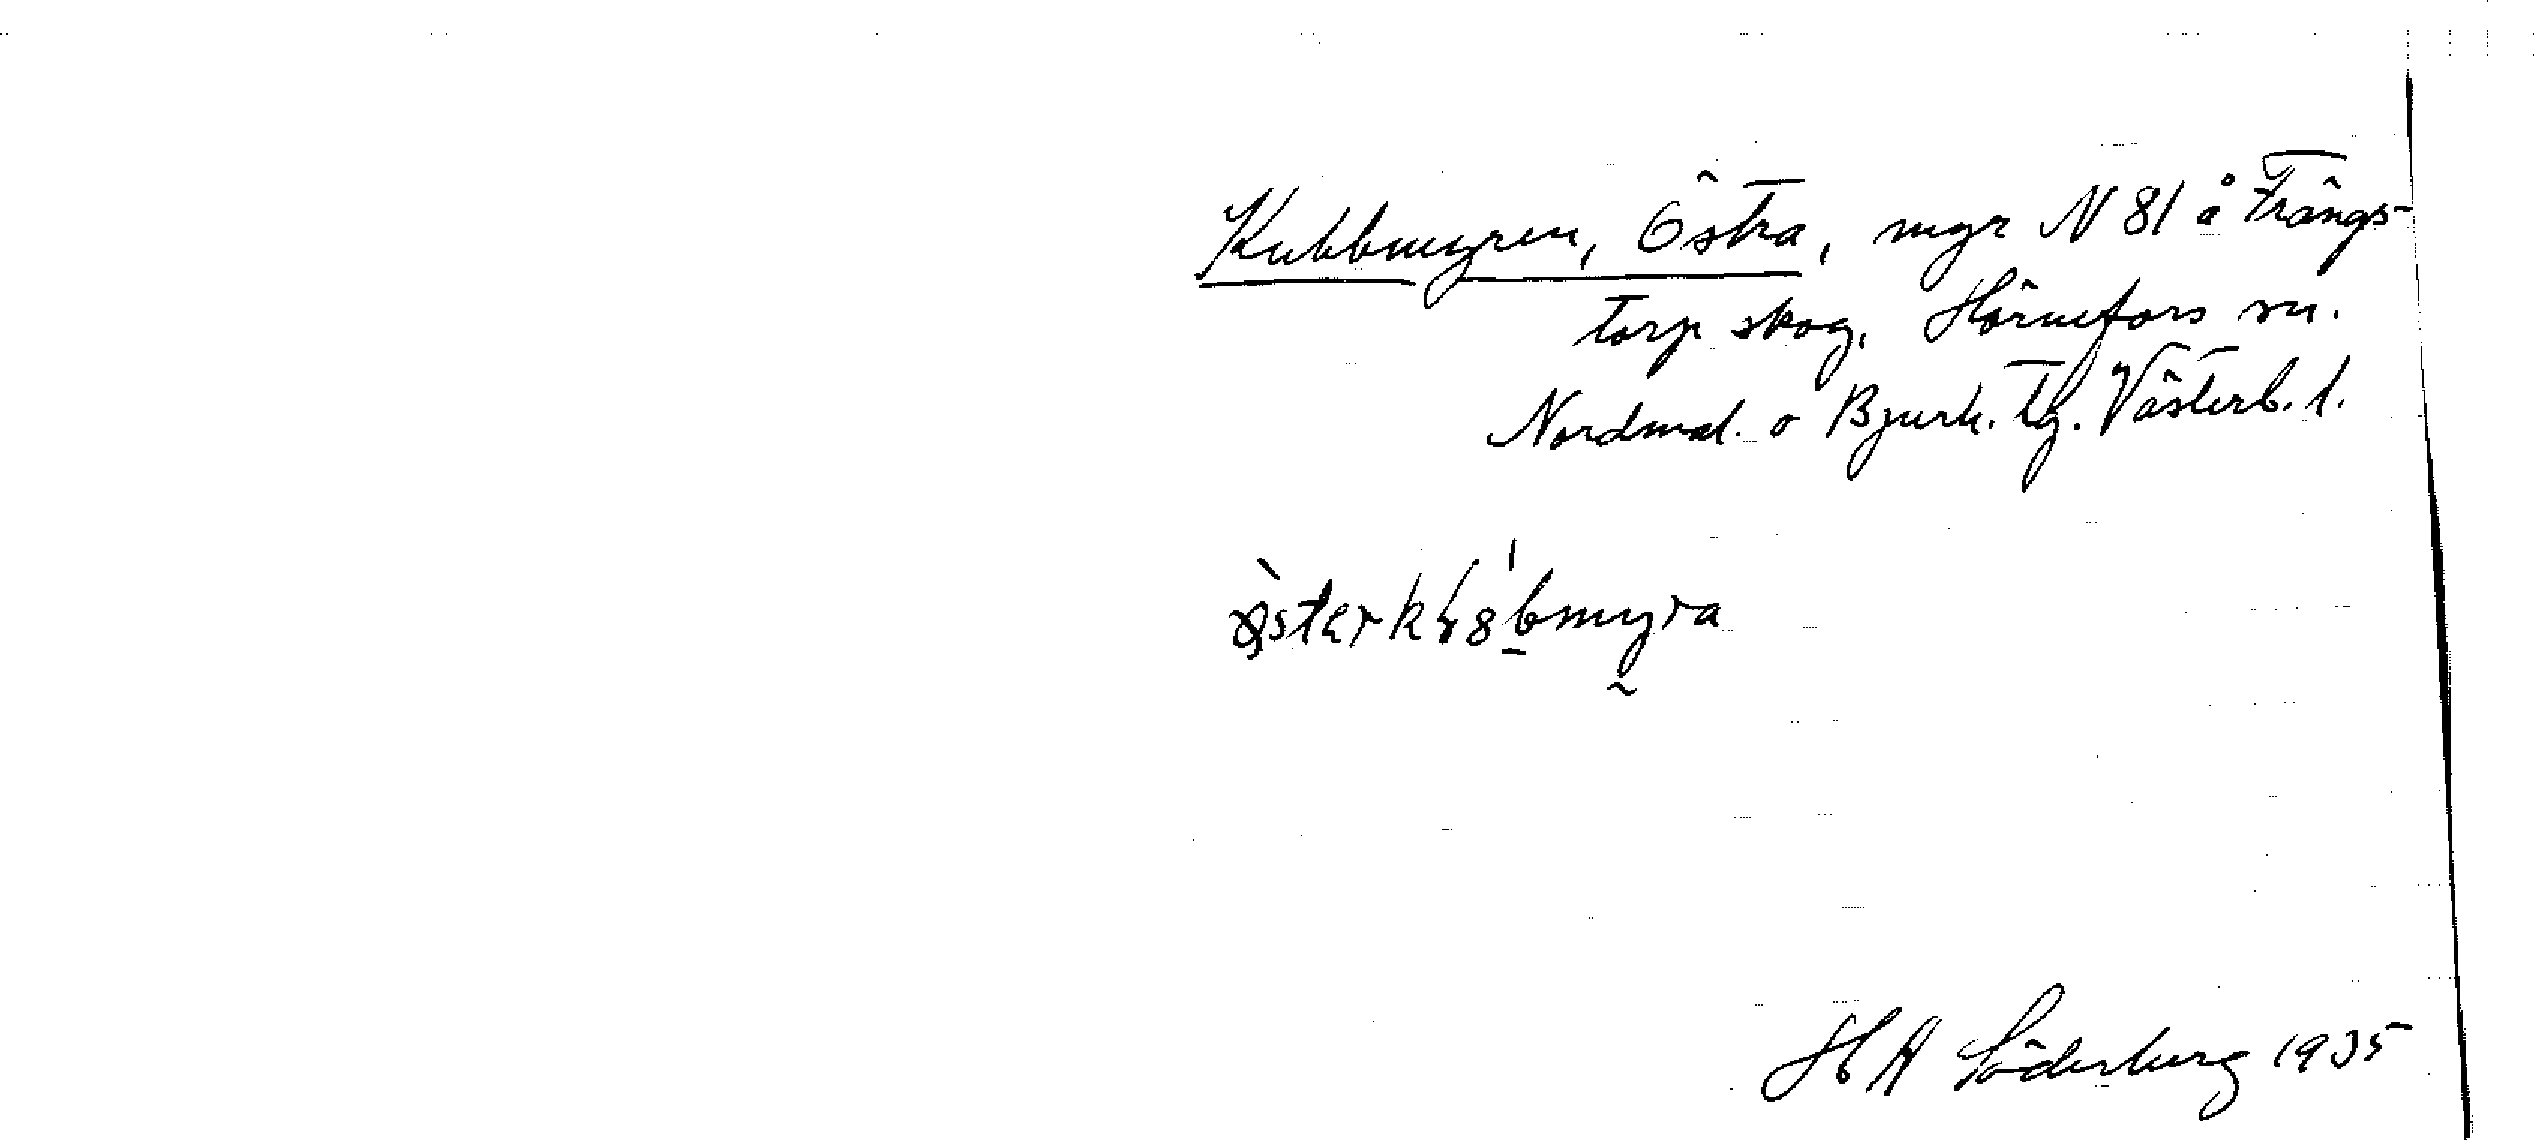 Kubbmyren, Östra, myr N 81 å Frängs-
torp skog, Hörnefors sn.
Nordmal. o Bjurh. tg. Västerb. l.
H A Söderberg 1935